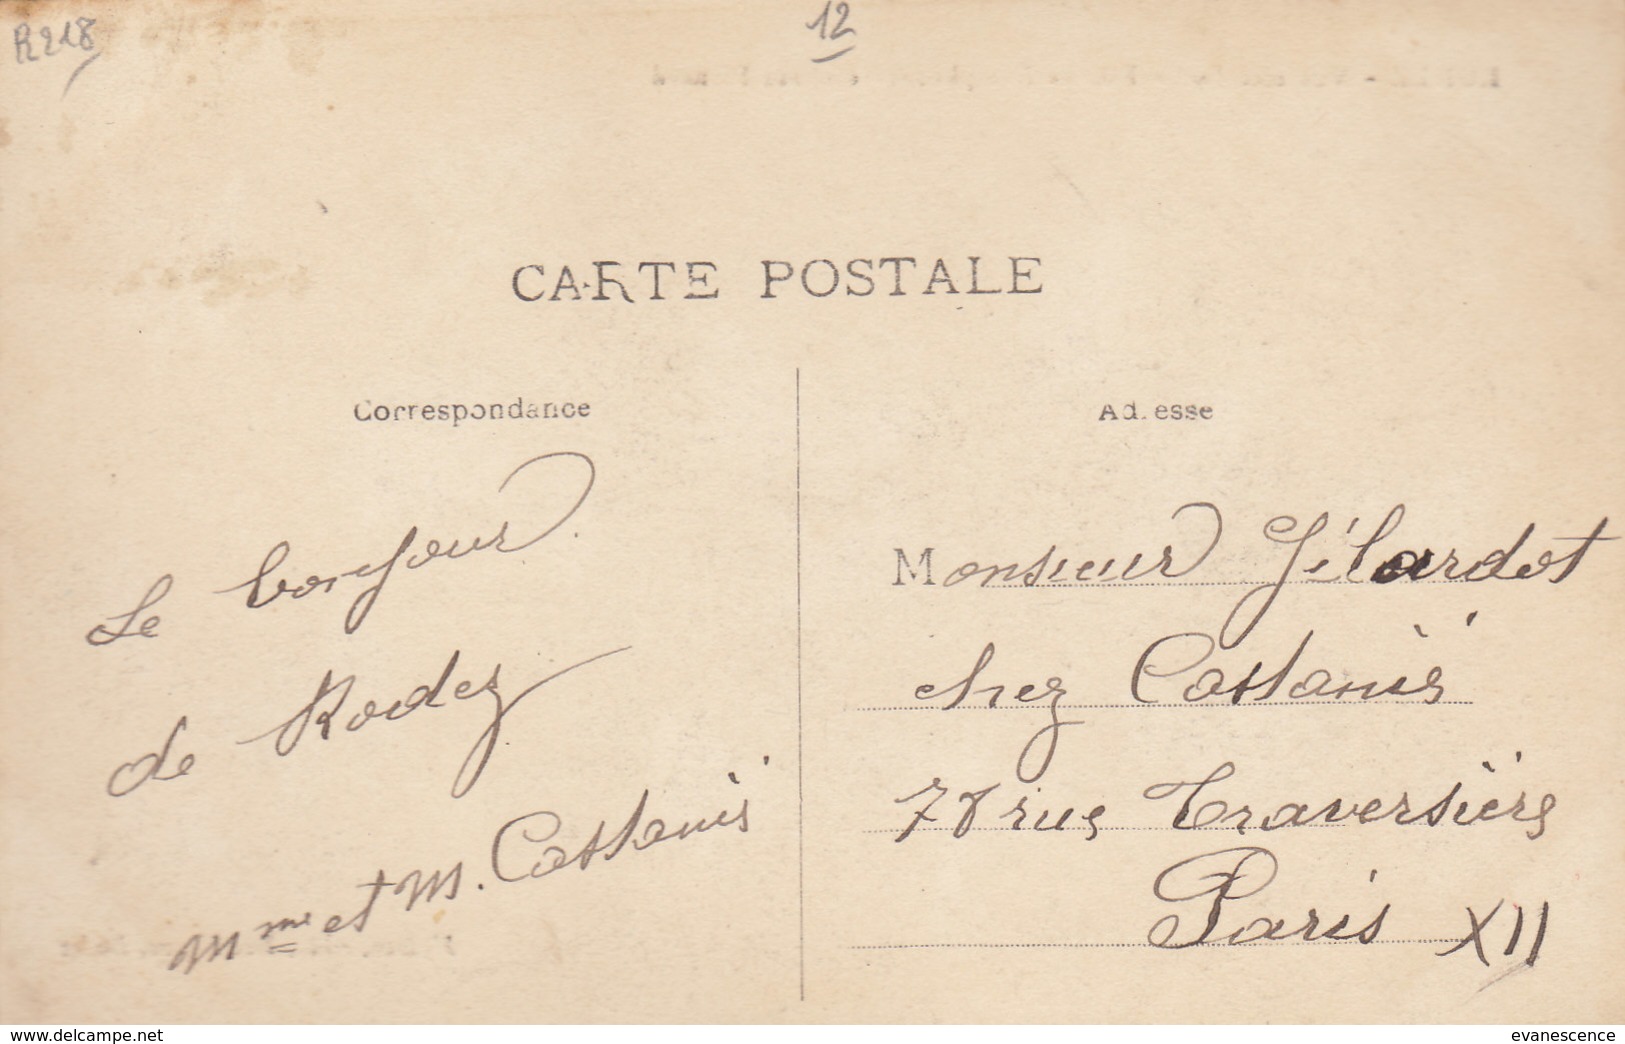 R218
12
CARTE POSTALE
Correspondance
Adresse
Le bonjour
de Rodez
Mme et M. Castanié
Monsieur Gélardot
chez Castanié
78 rue Traversière
Paris XII
www.delcampe.net
evanescence